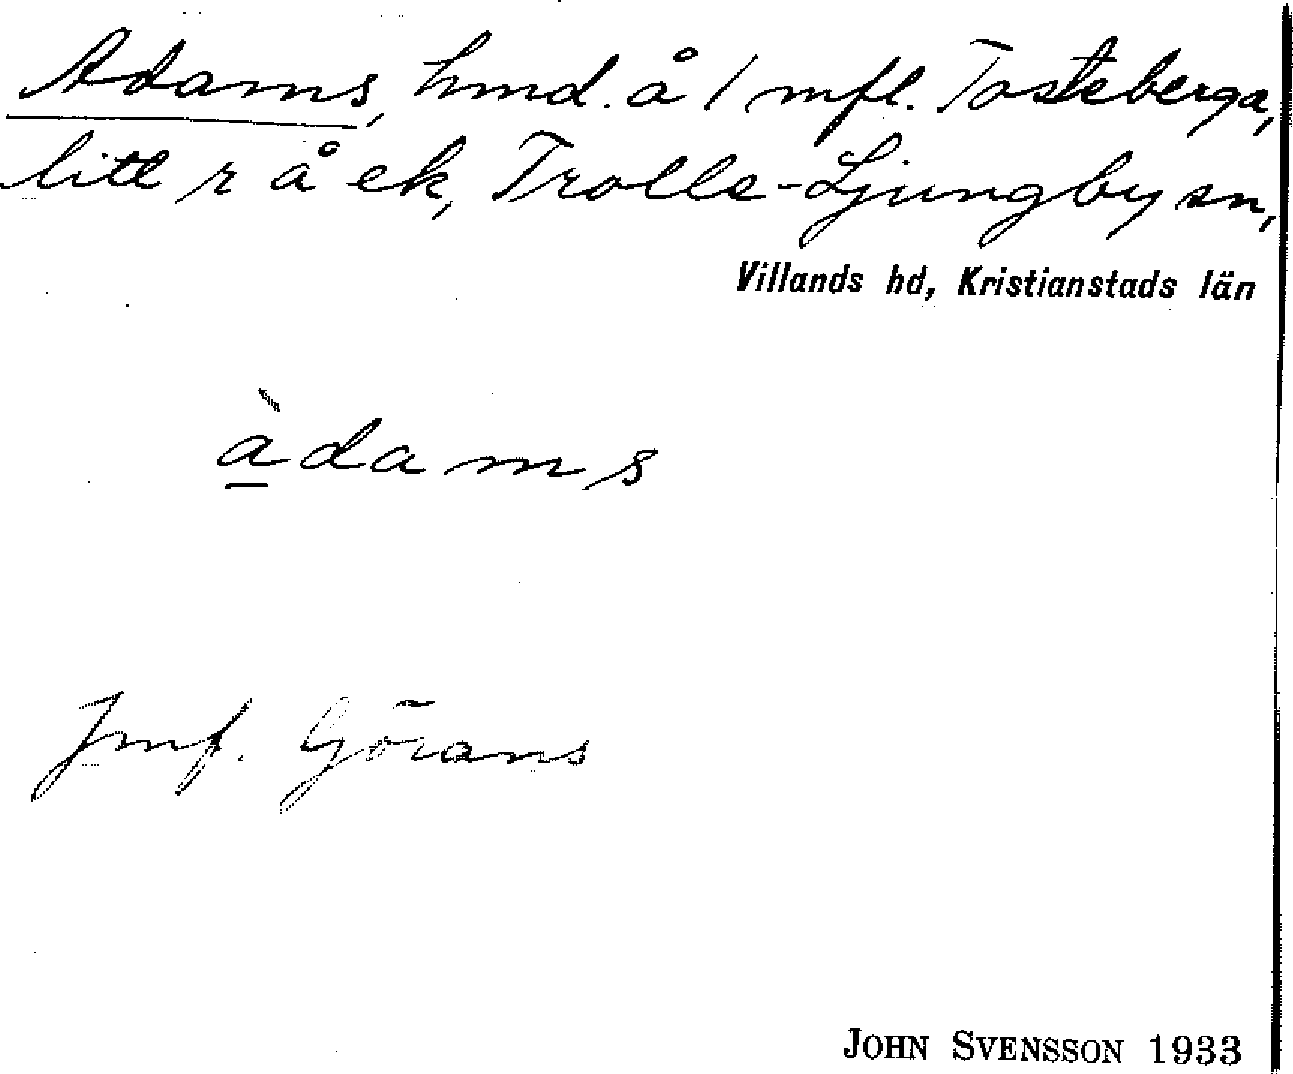 Adams, hmd. å 1 mfl. Tosteberga,
litt r å ek, Trolle-Ljungby sn,
Villands hd, Kristianstads län
àdams
Jmf. Görans
JOHN SVENSSON 1933